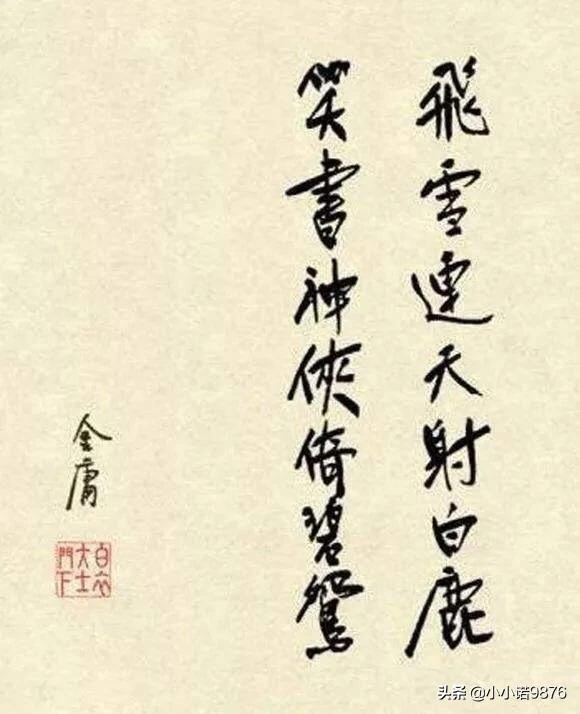 飛雪連天射白鹿
笑書神俠倚碧鴛
金庸
白衣大士門下
头条 @小小诺9876